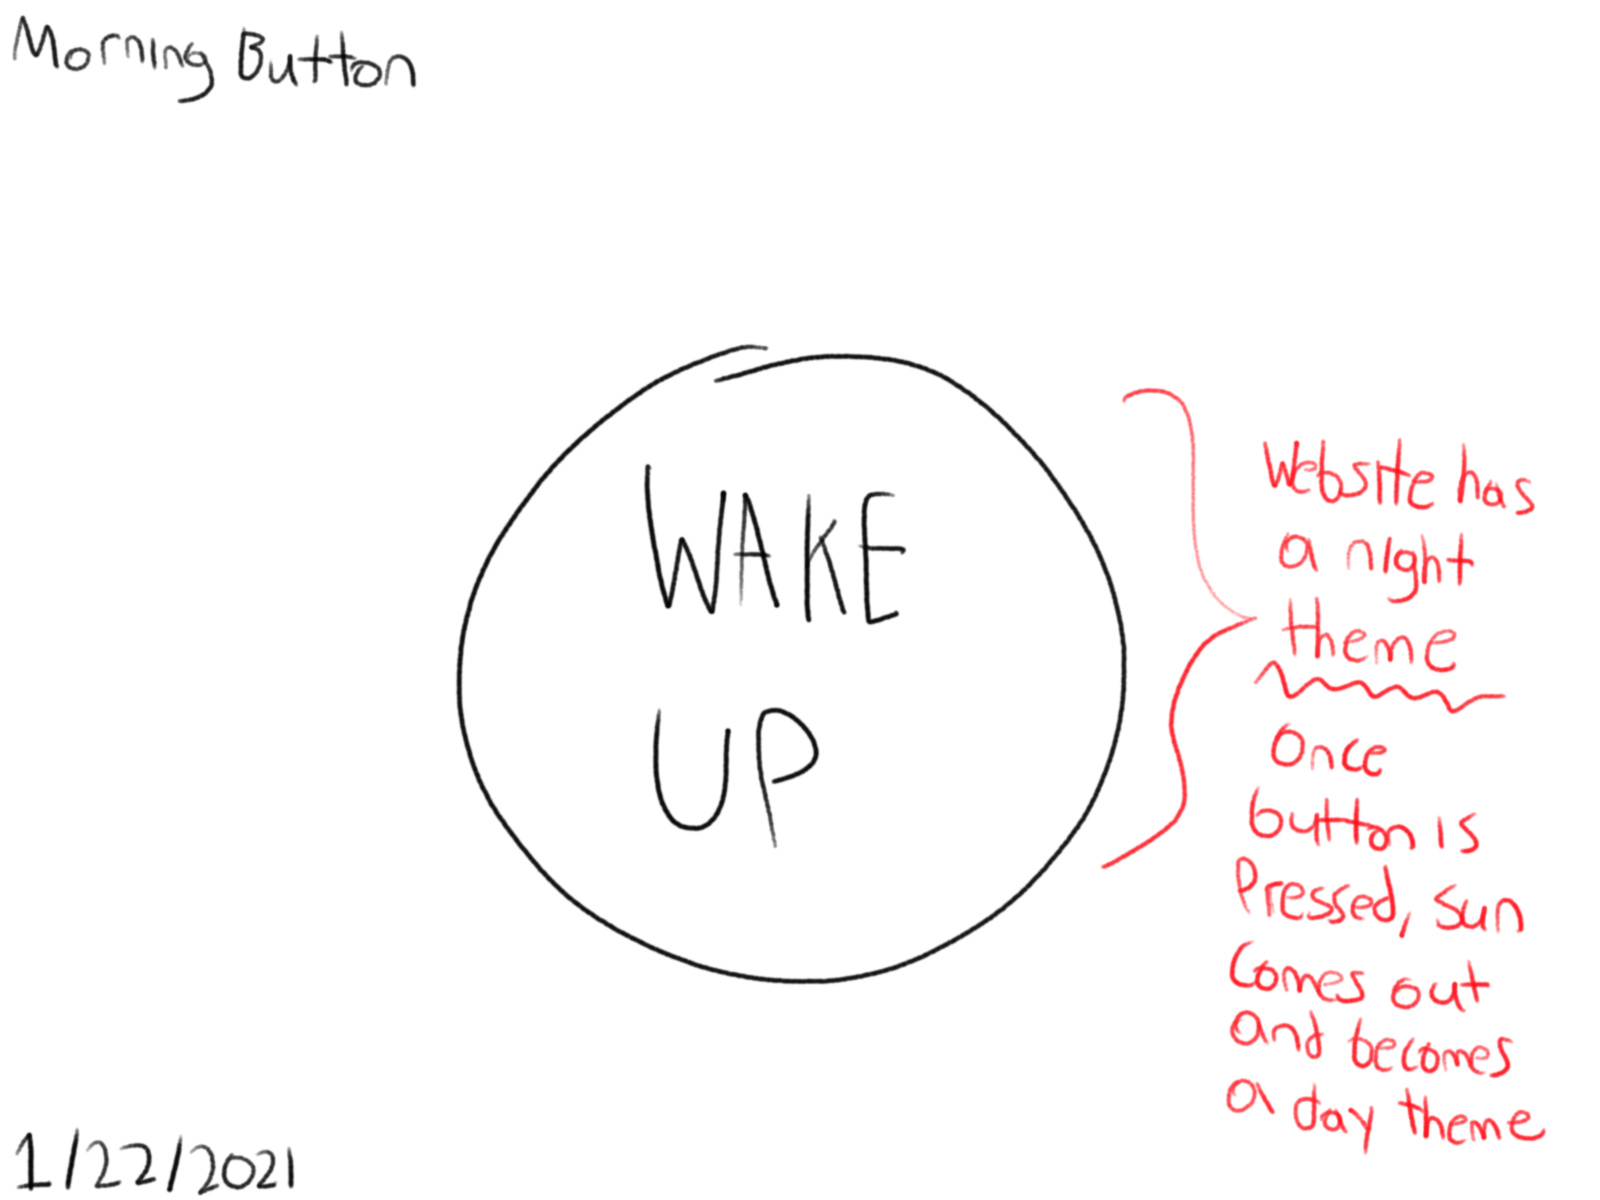 Morning Button
WAKE
UP
Website has
a night
theme
Once
button is
Pressed, sun
comes out
and becomes
a day theme
1/22/2021